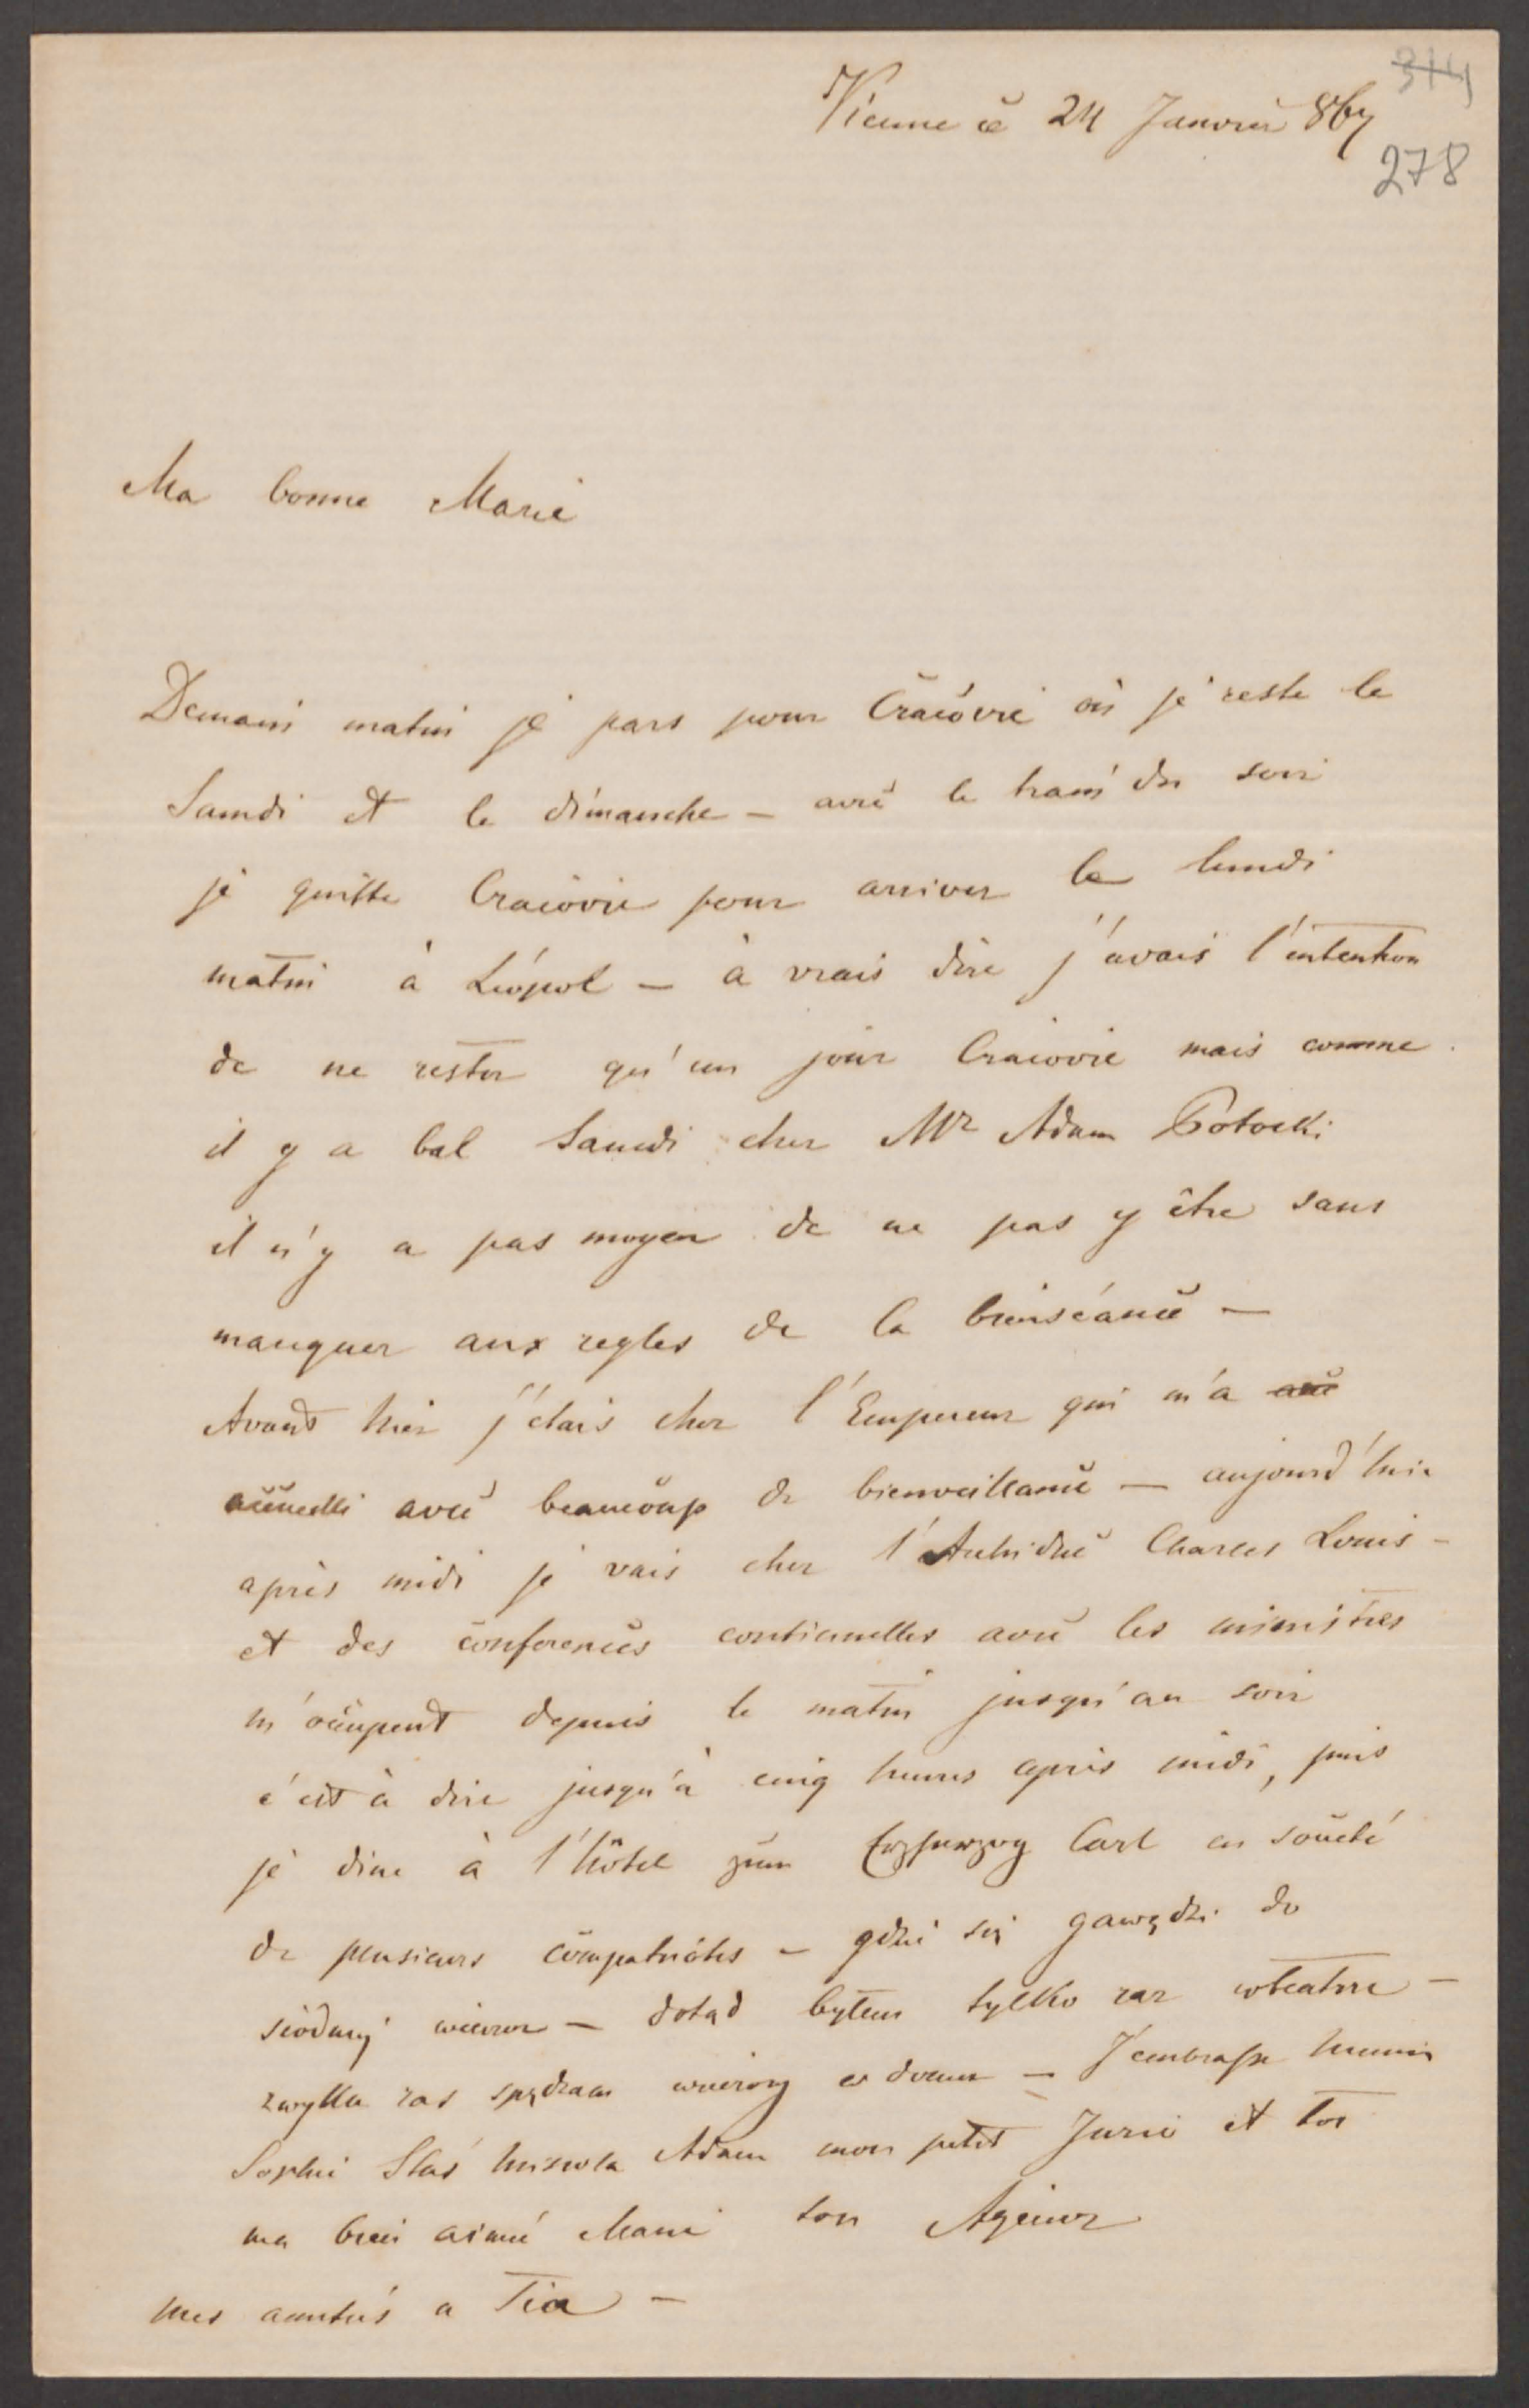 314
Vienne ce 24 Janvier 867
278
Ma bonne Marie
Demain matin je pars pour Cracovie où je reste le
Samdi et le dimanche — avec le train du soir
je quitte Cracovie pour arriver le lundi
matin à Léopol — à vrais dire j'avais l'intention
de ne rester qu'un jour Cracovie mais comme
il y a bal Samedi chez Mr Adam Potocki
il n'y a pas moyen de ne pas y être sans
manquer aux regles de la bienséance —
Avant hier j'étais chez l'Empereur qui m'a
accueilli avec beaucoup de bienveillance — aujourd'hui
après midi je vais chez l'Archiduc Charles Louis —
et des conferences continuelles avec les ministres
m'occupent depuis le matin jusqu'au soir
c'est à dire jusqu'à cinq heures après midi, puis
je dine à l'hôtel zum Erzherzog Carl en société
de plusieurs compatriotes — gdzie się gawędzi do
siódmej wieczor — dotąd byłem tylko raz w teatrze —
zwykle zas spędzam wieczory w domu — J'embrasse
Sophie Staś Adam mon petit et toi
ma bien aimé Marie ton Agenor
mes amitiés a Tia —